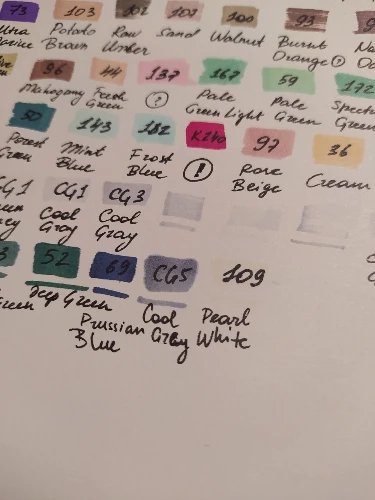 73 103 102 107 100 93
Ultra Potato Raw Sand Walnut Burnt
Brown Umber Orange ?
96 44 137 167 59 172
Mahogany Fresh ? Pale Pale
Green Green Light Green Green
50 143 182 K240 97 36
Forest Mint Frost ! Rose Cream
Green Blue Blue Beige
CG1 CG3
Cool Cool
Gray Gray
52 69 CG5 109
Green Deep Green Prussian Cool Pearl
Blue Gray White